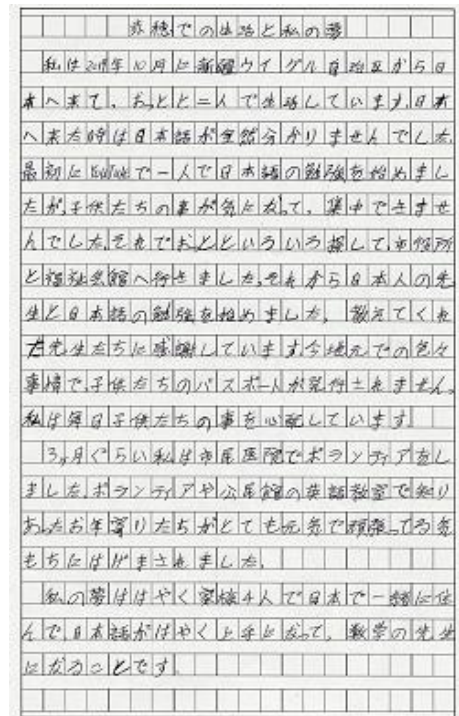 赤穂での生活と私の夢
私は2019年10月に新疆ウイグル自治区から日
本へ来て、おっとと二人で生活しています。日本
へ来た時は日本語が全然分かりませんでした。
最初にYouTubeで一人で日本語の勉強を始めまし
たが、子供たちの事が気になって、集中できませ
んでした。それでおっとといろいろ探して、市役所
と福祉会館へ行きました。それから日本人の先
生と日本語の勉強を始めました。教えてくれ
た先生たちに感謝しています。今地元での色々
事情で、子供たちのパスポートが発行されません。
私は毎日子供たちの事を心配しています。
3ヶ月ぐらい私は市民医院でボランティアをし
ました。ボランティアや公民館の英語教室で知り
あったお年寄りたちがとても元気で頑張ってる気
もちにはげまされました。
私の夢ははやく家族4人で日本で一緒に住
んで、日本語がはやく上手になって、数学の先生
になることです。